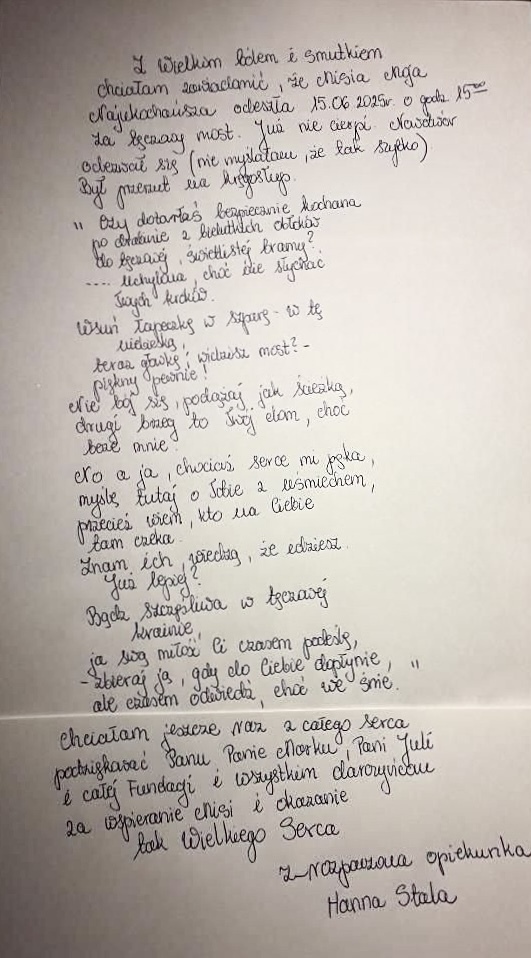 Z Wielkim bólem i smutkiem
chciałam zawiadomić, że Misia Moja
Najukochańsza odeszła 15.06 2025r. o godz 15⁰⁰
za tęczowy most. Już nie cierpi. Nowotwór
odezwał się (nie myślałam, że tak szybko)
Był przerzut na kręgosłup.
" Czy dotarłaś bezpiecznie kochana
po dywanie z bielutkich obłoków
do tęczowej, świetlistej bramy?
.... uchylona, choć nie słychać
Twych kroków.
Wsuń łapeczkę w szparę - w tę
niebieską,
teraz główkę, widzisz most? -
piękny pewnie!
Nie bój się, podążaj jak ścieżką,
drugi brzeg to Twój dom, choć
beze mnie.
No a ja, chociaż serce mi pęka,
myślę tutaj o Tobie z uśmiechem,
przecież wiem, kto na Ciebie
tam czeka.
Znam ich, wiedzą, że idziesz.
Już lepiej?
Bądź szczęśliwa w tęczowej
krainie,
ja swą miłość Ci czasem podeślę,
- zbieraj ją, gdy do Ciebie dopłynie, "
ale czasem odwiedź, choć we śnie.
Chciałam jeszcze raz z całego serca
podziękować Panu, Panie Marku, Pani Juli
i całej Fundacji i wszystkim darczyńcom
za wspieranie Misi i okazanie
tak Wielkiego Serca
Z rozpaczona opiekunka
Hanna Stala